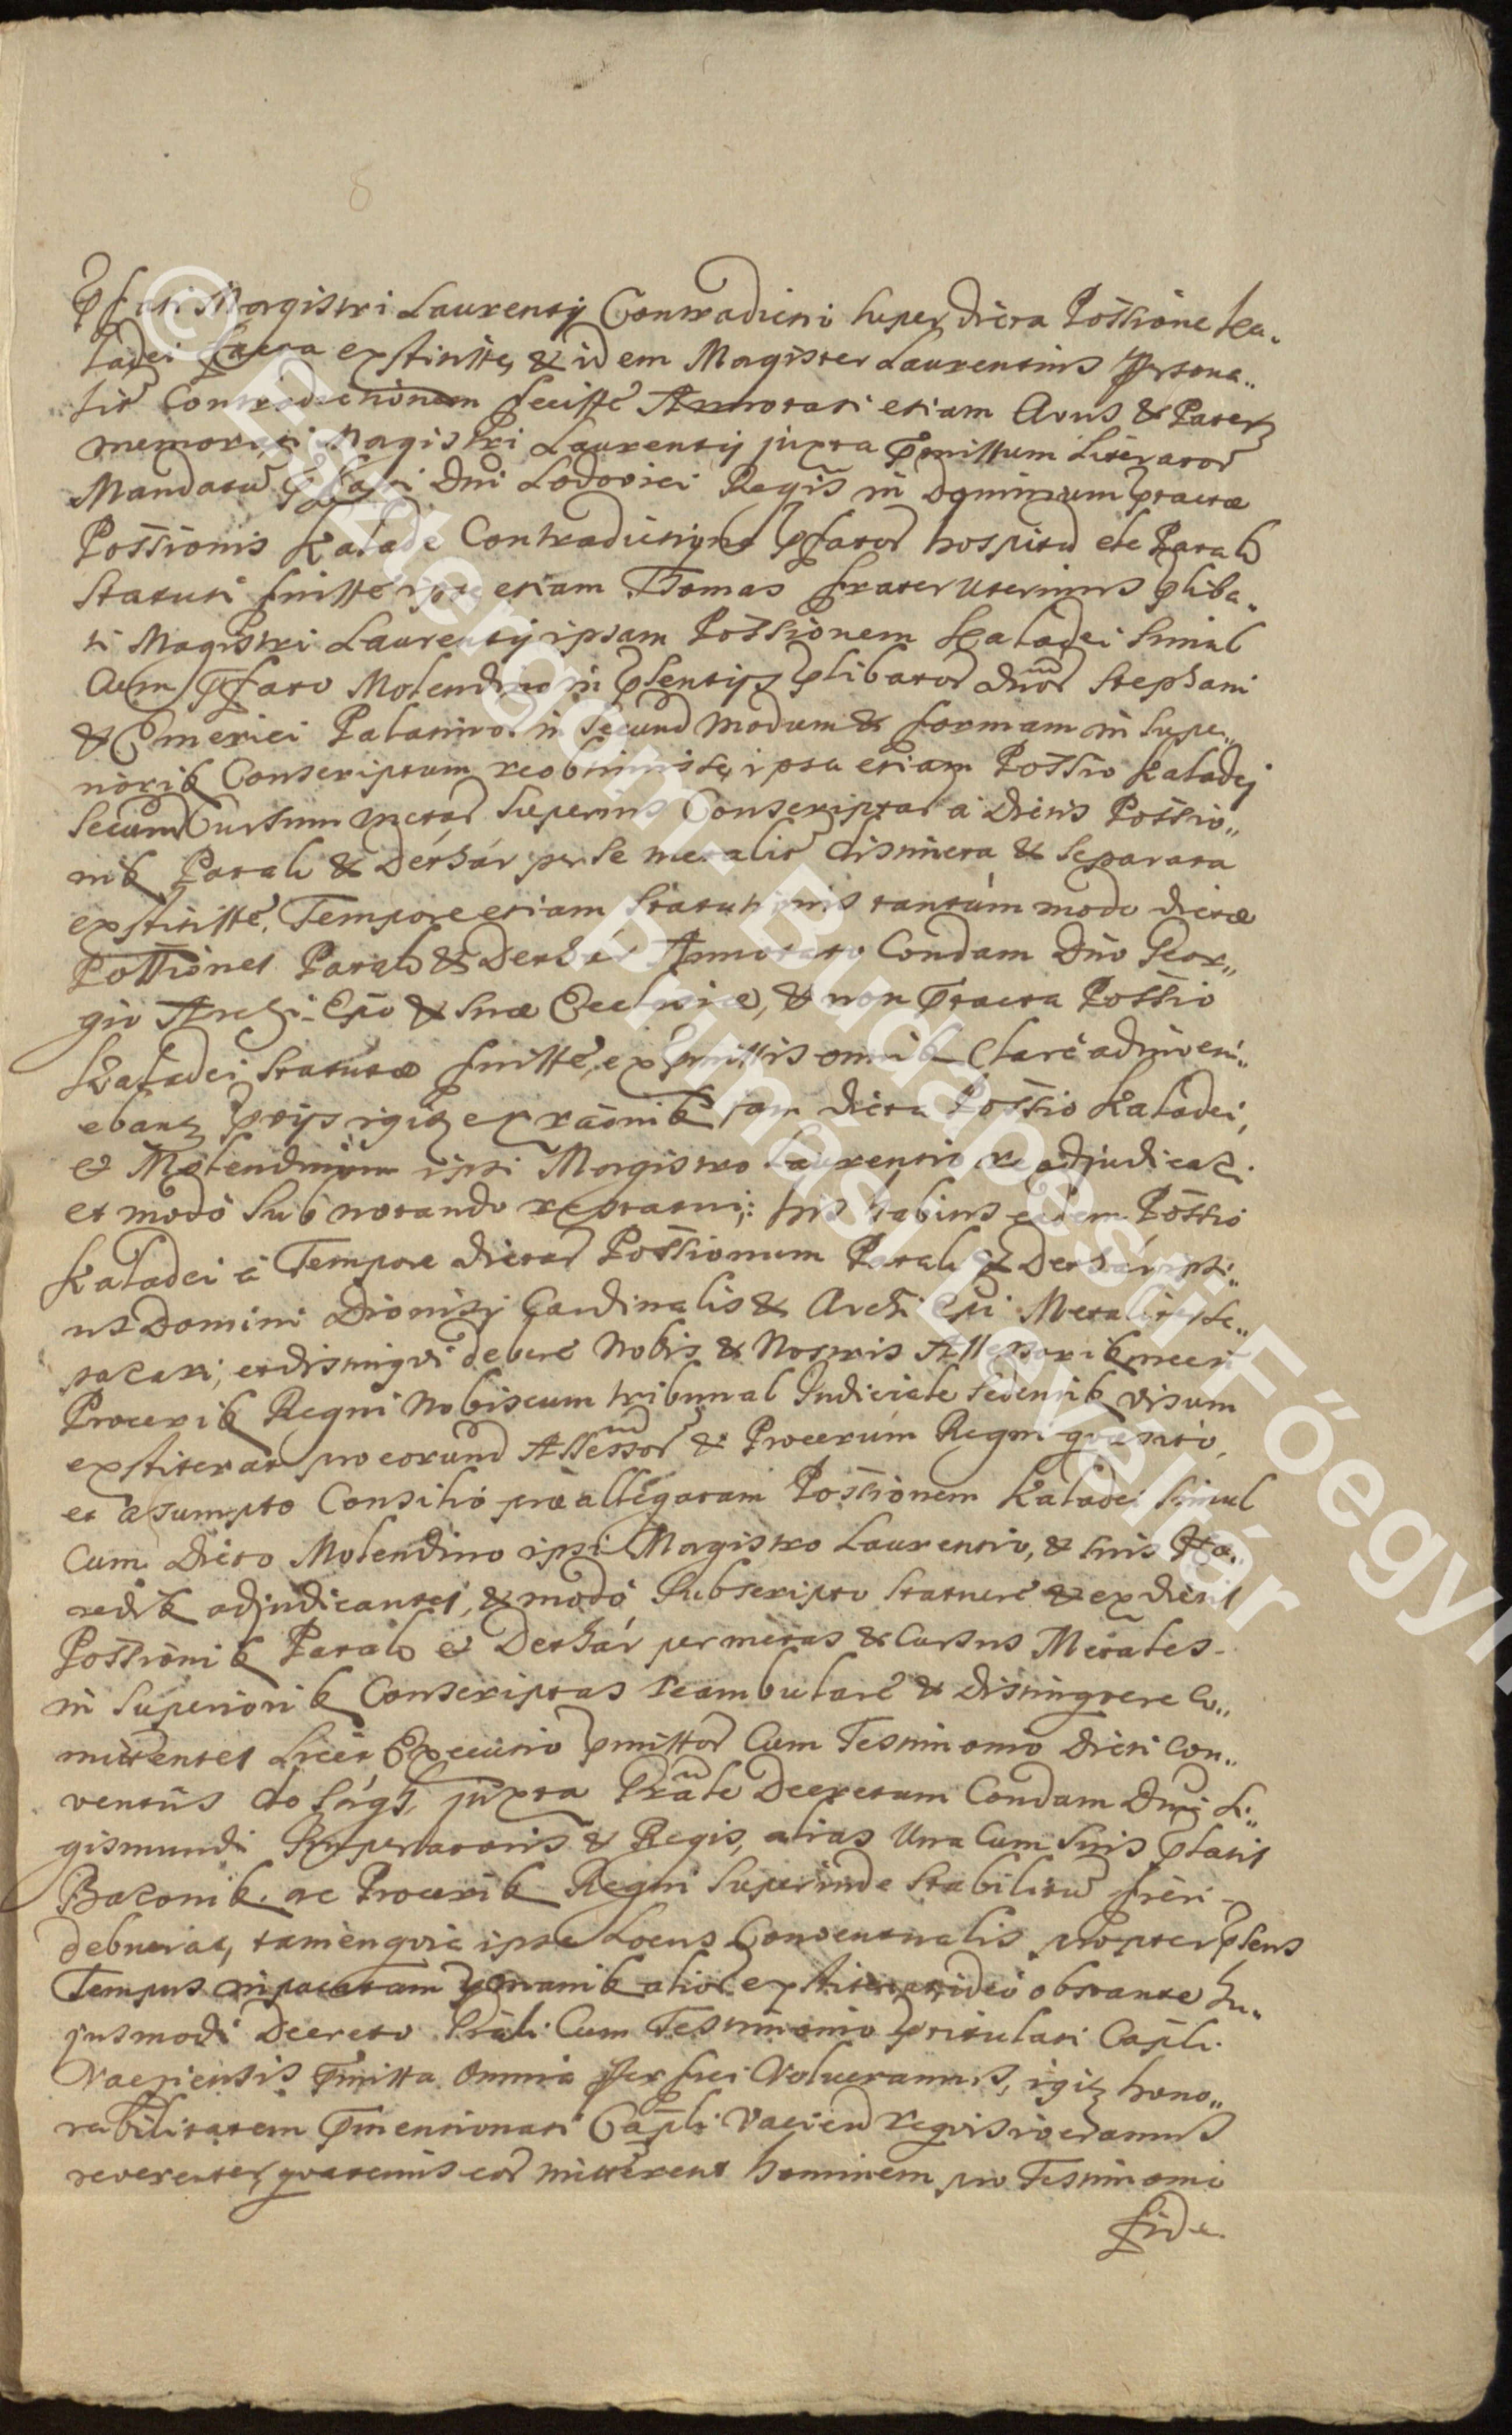 pfati Magistri Laurentÿ Contradicti super dicta Possione Ka„
ladei facta extitisse, & idem Magister Laurentius persona„
lir Contradictionem fecisse Annotati etiam Avus & Pater
memorati Magistri Laurentÿ juxta pmissum Literator
Mandatu pfati Dni Lodovici Regis in Dominium ptactæ
Possionis Kaladei pfator hospitu de Parab
Statuti fuisse ipse etiam Tomas frater Uterinus pliba„
ti Magistri Laurentÿ ipsam Possionem Kaladei Simul
Cum pfato Molendino in psentÿs plibator dnor Stephani
& Emerici Palatinor in Secund modum & formam in Supe„
riorib Conscriptum reobtinuisse, ipsa etiam Possio Kaladej
Secund Cursum metar Superius Conscriptar a Dictis Possio„
nib Parab & Derhár per Se metalir distincta & Separata
extitisse, Tempore etiam Statutionis tantúm modo dictæ
Possiones Parab & Derhár Annotato Condam Dno Geor„
gio Archi-Epo & Suæ Ecclesiæ, & non ptacta Possio
Kaladei Statutæ fuisse, ex pmissis omnib Clare adinveni„
ebant, ptijs igitz ex raõnib jam dicta Possio Kaladei,
& Molendinum ipsi Magistro Laurentio readjudicari
et modo Sub notando restatui, ejus eadem Possio
Kaladei a Tempore dictar Possionum Parab & Derhár ipsi„
us Domini Dionisÿ Cardinalis & Archi Epi Metalir Se„
parari, et distingvi debere Nobis & Nostris Assessorib necn
Procerib Regni Nobiscum tribunal Judiciale Sedentib visum
extiterat pro eorund Assessor & Procerum Regni qvæsito,
et assumpto Consilio præallegatam Possionem Kaladei Simul
Cum Dicto Molendino ipsi Magistro Laurentio, & Suis Hæ„
redib adjudicantes, & modo Subscripto Statuere & ex dictis
Possionib Parab et Derhár per metas & Cursus Metales
in Superiorib Conscriptas reambulare & distingvere Co„
mittentes Licet Executio pmissor Cum Testimonio Dicti Con„
ventus de Ságh, juxta Grãle Decretum Condam Dni Si„
gismundi Imperatoris & Regis, alias Una Cum Suis platis
Baronib ac Procerib Regni Superinde Stabilitu fieri
debuerat, tamen qvia ipse Locus Conventualis propter psens
Tempus inpacatum alior extiterat, ideo obstante hu„
jusmodi Decreto Grali Cum Testimonio ptitulati Capli
Vaciensis pmissa Omnia per fici Volueramus, igitz hono„
rabilitatem pmentionati Capli Vacien reqvisiveramus
reverenter, qvatenus eor mitterent hominem pro Testimonio
fide
© Esztergom-Budapesti Főegyh
Prímási Levéltár